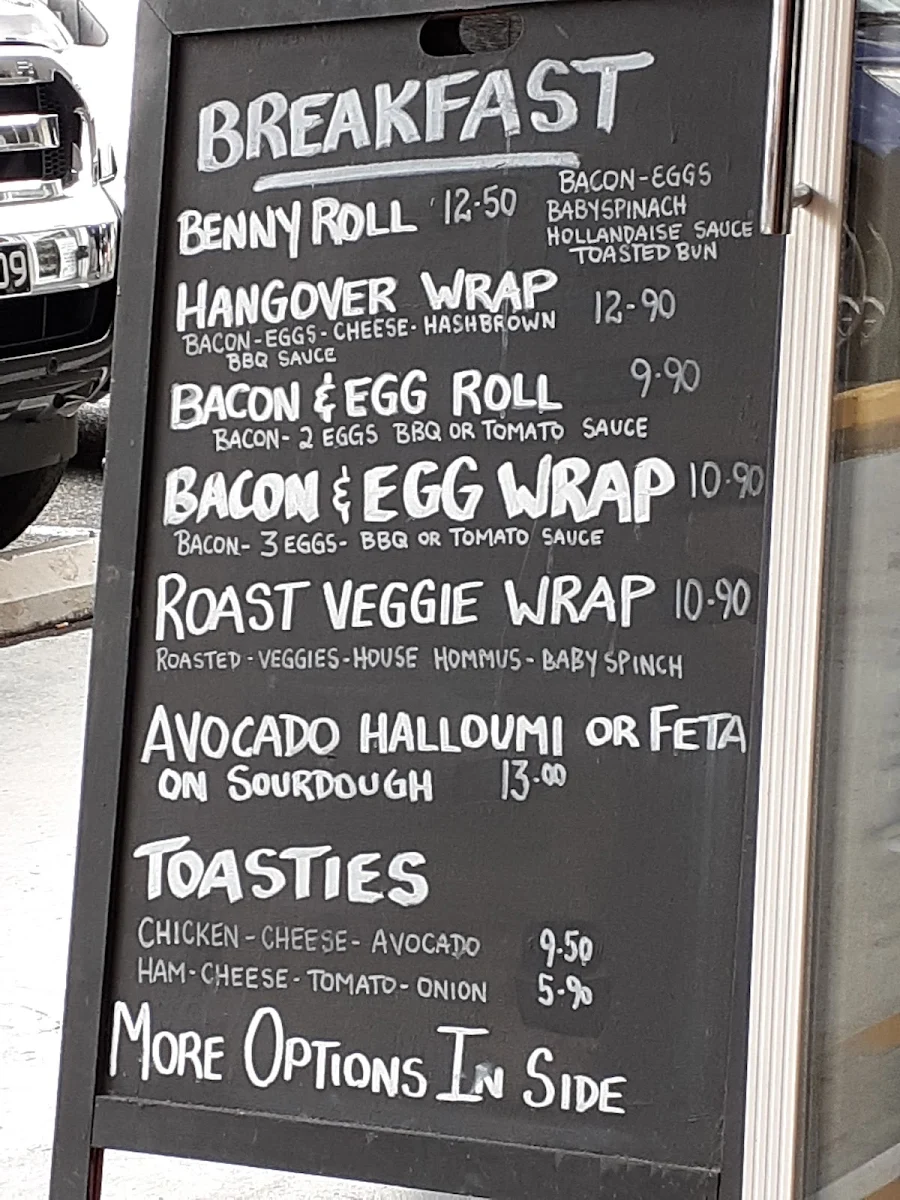 BREAKFAST
BENNY ROLL 12-50
BACON-EGGS
BABYSPINACH
HOLLANDAISE SAUCE
TOASTED BUN
HANGOVER WRAP 12-90
BACON-EGGS-CHEESE-HASHBROWN
BBQ SAUCE
BACON & EGG ROLL 9-90
BACON- 2 EGGS BBQ OR TOMATO SAUCE
BACON & EGG WRAP 10-90
BACON- 3 EGGS- BBQ OR TOMATO SAUCE
ROAST VEGGIE WRAP 10-90
ROASTED-VEGGIES-HOUSE HOMMUS-BABY SPINCH
AVOCADO HALLOUMI OR FETA
ON SOURDOUGH 13-00
TOASTIES
CHICKEN-CHEESE-AVOCADO 9.50
HAM-CHEESE-TOMATO-ONION 5-90
MORE OPTIONS IN SIDE
09